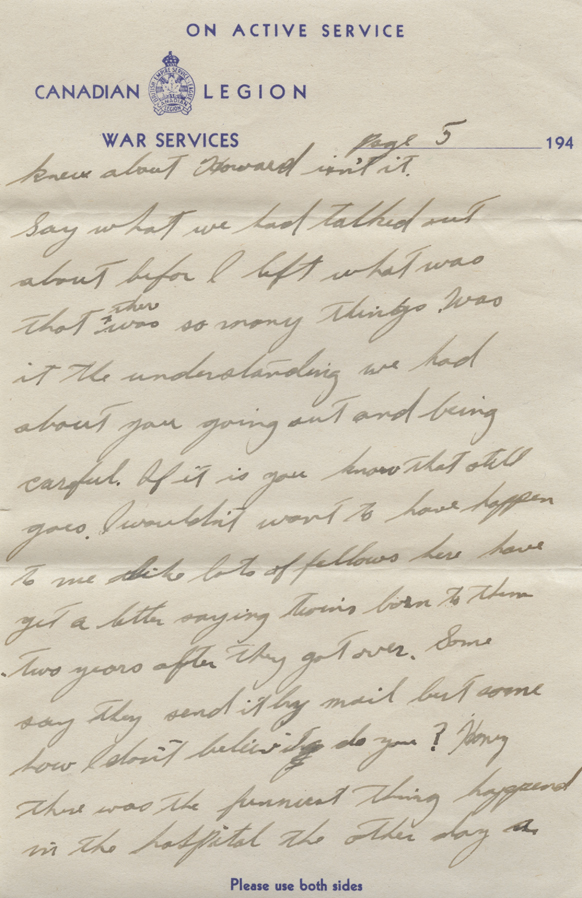 ON ACTIVE SERVICE
CANADIAN LEGION
WAR SERVICES
Page 5 194
knew about Howard isn't it.
Say what we had talked out
about befor I left what was
that ther
was so many things. Was
it the understanding we had
about you going out and being
careful. If it is you know that still
goes. I wouldn't want to have happen
to me like lots of fellows here have
get a letter saying twins born to them
two years after they got over. Some
say they send it by mail but some
how I don't believ it do you? Honey
there was the funniest thing happend
in the hospital the other day a
Please use both sides